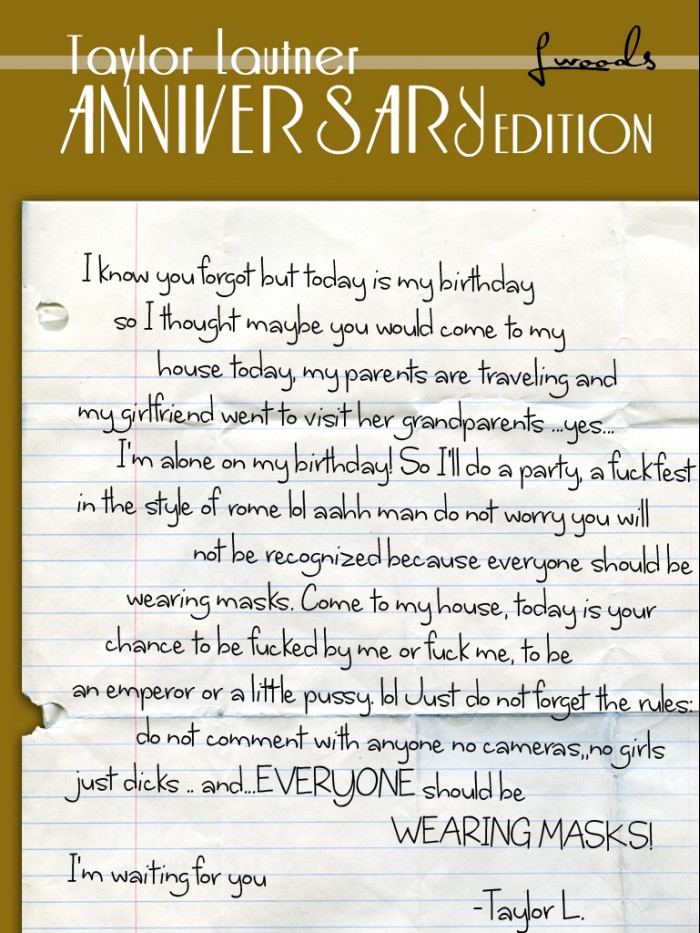 Taylor Lautner
Swoods
ANNIVERSARY EDITION
I know you forgot but today is my birthday
so I thought maybe you would come to my
house today, my parents are traveling and
my girlfriend went to visit her grandparents ...yes...
I'm alone on my birthday! So I'll do a party, a fuckfest
in the style of rome lol aahh man do not worry you will
not be recognized because everyone should be
wearing masks. Come to my house, today is your
chance to be fucked by me or fuck me, to be
an emperor or a little pussy. lol Just do not forget the rules:
do not comment with anyone no cameras,,no girls
just dicks .. and...EVERYONE should be
WEARING MASKS!
I'm waiting for you
-Taylor L.